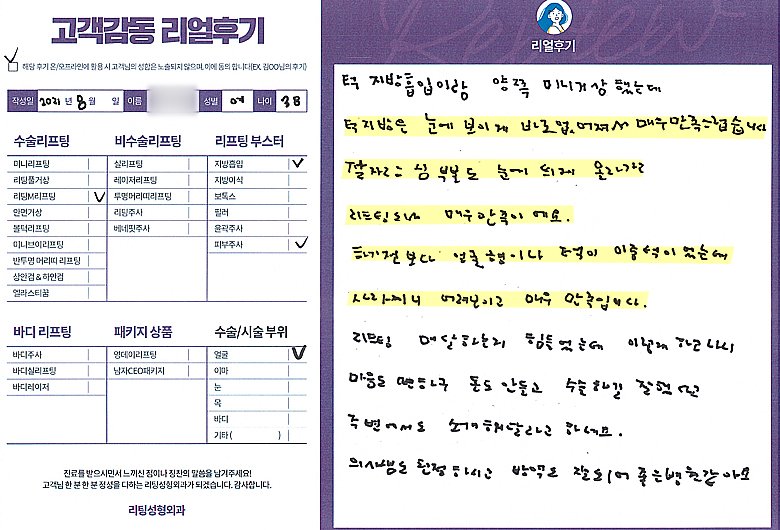 고객감동 리얼후기
해당 후기 온/오프라인에 활용 시 고객님의 성함은 노출되지 않으며, 이에 동의 합니다(EX. 김OO님의 후기)
작성일 2021 년 8 월 일 이름 성별 여 나이 38
수술리프팅
미니리프팅
리팅풀거상
리팅M리프팅
안면거상
볼턱리프팅
미니브이리프팅
반투명 머리띠 리프팅
상안검 & 하안검
엘라스티꿈
비수술리프팅
실리프팅
레이저리프팅
투명머리띠리프팅
리팅주사
베네핏주사
리프팅 부스터
지방흡입
지방이식
보톡스
필러
윤곽주사
피부주사
바디 리프팅
바디주사
바디실리프팅
바디레이저
패키지 상품
영데이리프팅
남자CEO패키지
수술/시술 부위
얼굴
이마
눈
목
바디
기타 ( )
진료를 받으시면서 느끼신 점이나 칭찬의 말씀을 남겨주세요!
고객님 한 분 한 분 정성을 다하는 리팅성형외과가 되겠습니다. 감사합니다.
리팅성형외과
Review
리얼후기
턱 지방흡입이랑 양쪽 미니거상 했는데
턱지방은 눈에 보이게 바로 없어져서 매우만족스럽습니다
팔자라는 심부볼도 눈에 띄게 올라가고
리프팅도 매우만족이에요.
하기전보다 얼굴형이나 턱이 이중턱이 있는데
사라지니 어려보이고 매우 만족입니다.
리프팅 매달하는게 힘들었는데 이렇게 하고나니
마음도 편하구 돈도 안들고 수술하길 잘했네요
주변에서도 소개해달라고 하세요.
의사쌤도 친절하시고 방역도 잘되어 좋은병원같아요